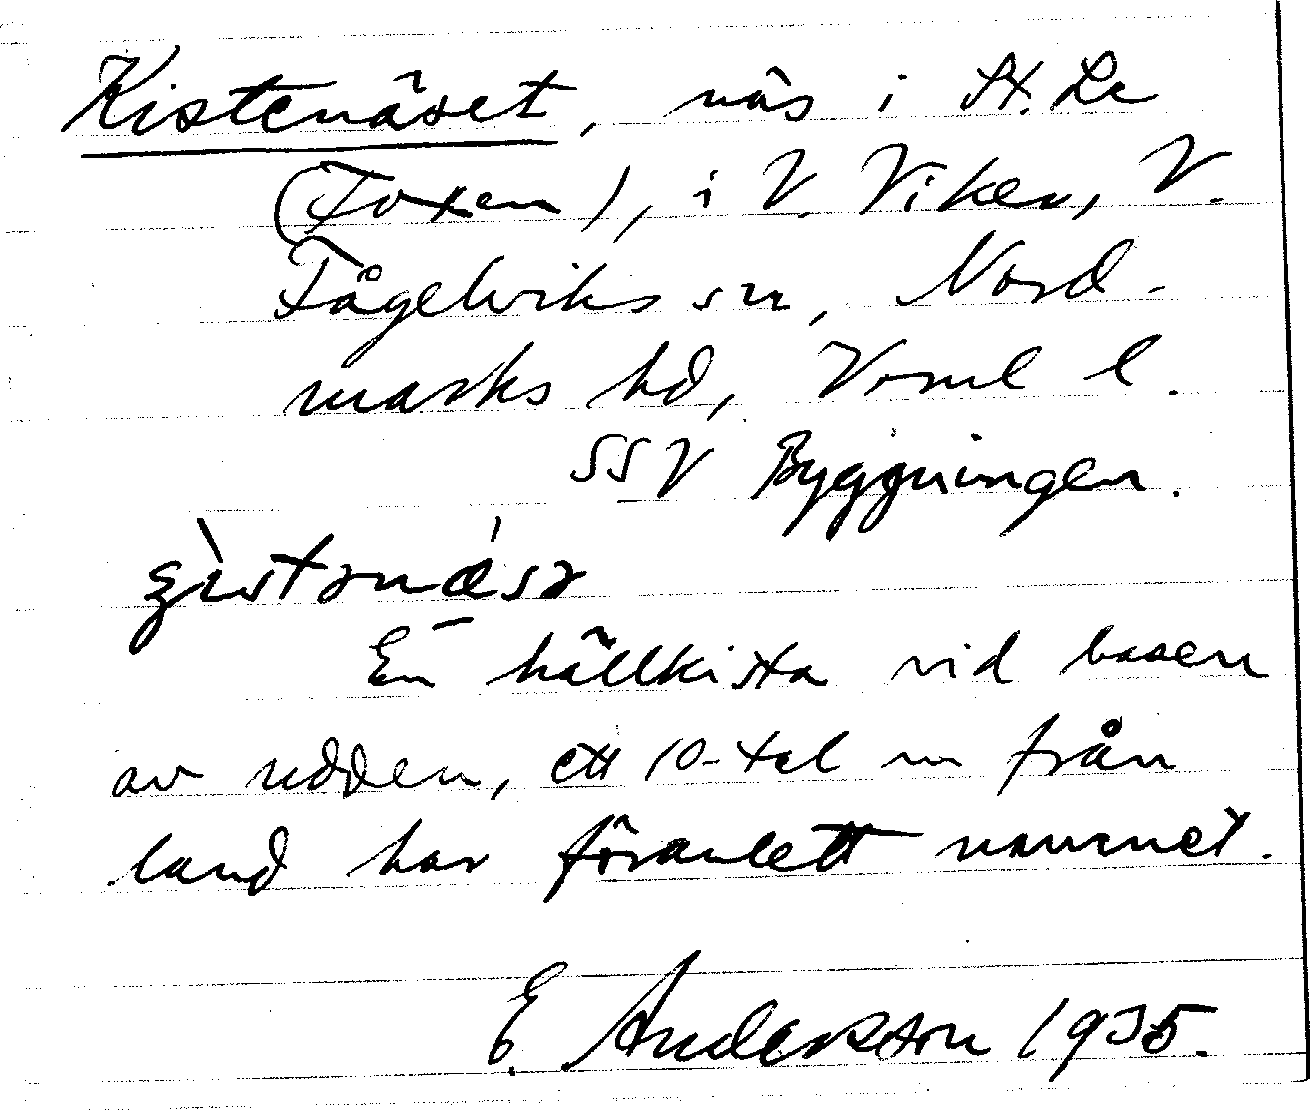 Kistenäset, näs i St. Le
(Foxen), i V. Viker, V.
Fågelviks sn, Nord-
marks hd, Verml l.
SSV Byggningen.
En hällkista vid basen
av udden, ett 10-tal m från
land har föranlett namnet.
E. Anderson 1935.